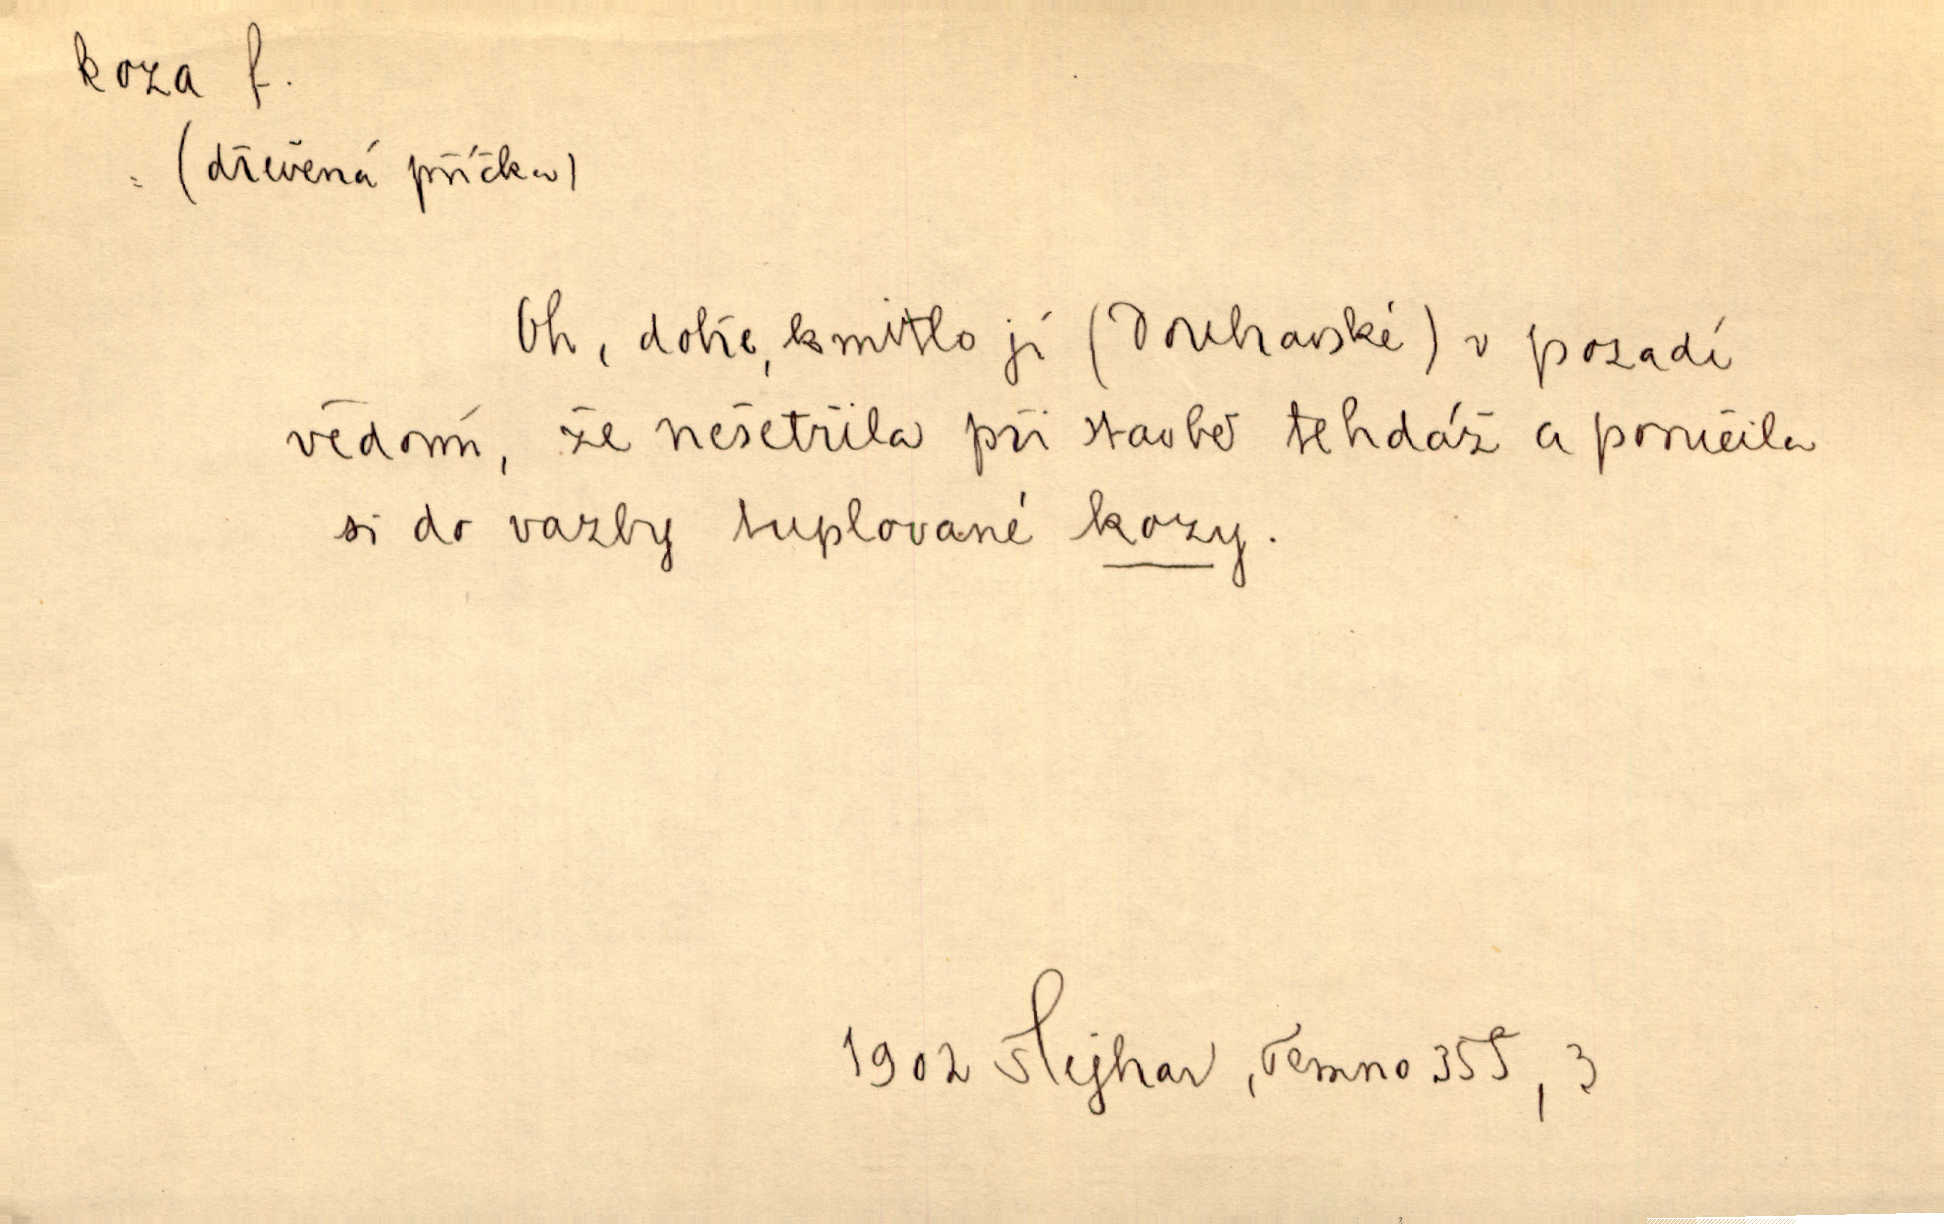 koza f.
= (dřevěná příčka)
Oh, dobře, kmitlo jí (Douhavské) v pozadí
vědomí, že nešetřila při stavbě tehdáž a poručila
si do vazby tuplované kozy.
1902 Šlejhar, Temno 355, 3